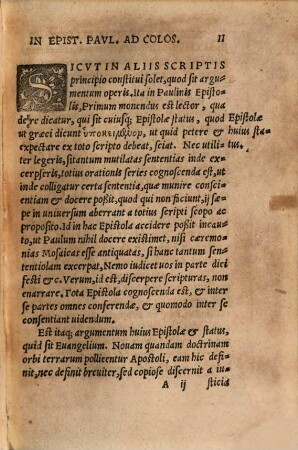 IN EPIST. PAVL. AD COLOS. II
SICVT IN ALIIS SCRIPTIS
principio constitui solet, quod sit argu-
mentum operis, Ita in Paulinis Episto-
lis, Primum monendus est lector, qua
de re dicatur, qui sit cuiusq; Epistolæ status, quod
Epistolæ
ut græci dicunt ὑποκείμενον, ut quid petere &
huius sta-
expectare ex toto scripto debeat, sciat. Nec utili-
tus.
ter legeris, si tantum mutilatas sententias inde ex-
cerpseris, totius orationis series cognoscenda est, ut
inde colligat certa sententia, quæ munire conscien-
tiam & docere poßit, quod qui non faciunt, ij sæ-
pe in universum aberrant a totius scripti scopo ac
proposito. Id in hac Epistola accidere poßit incau-
to, ut Paulum nihil docere existimet, nisi ceremo-
nias Mosaicas esse antiquatas, si hanc tantum sen-
tentiolam excerpat, Nemo iudicet uos in parte diei
festi &c. Verum, id est, discerpere scripturas, non
enarrare, Tota Epistola cognoscenda est, & inter
se partes omnes conferendæ, & quomodo inter se
consentiant uidendum.
Est itaq; argumentum huius Epistolæ & status,
quid sit Euangelium. Nouam quandam doctrinam
orbi terrarum pollicentur Apostoli, eam hic defi-
nit, nec definit breuiter, sed copiose discernit a iu-
A ij sticia